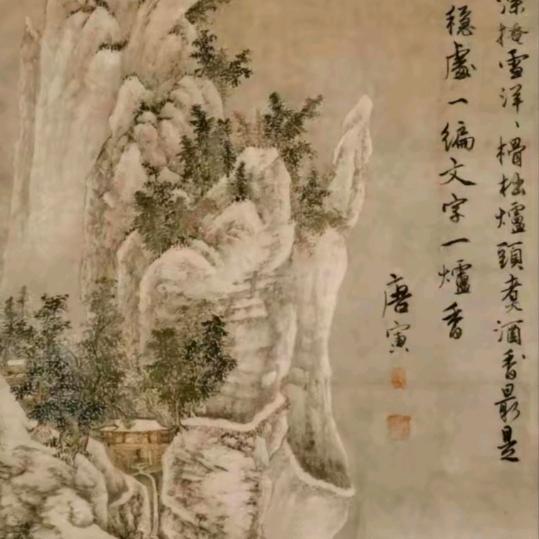 深掩雪洋〻榾柮爐頭煮酒香最是
穩處一編文字一爐香
唐寅